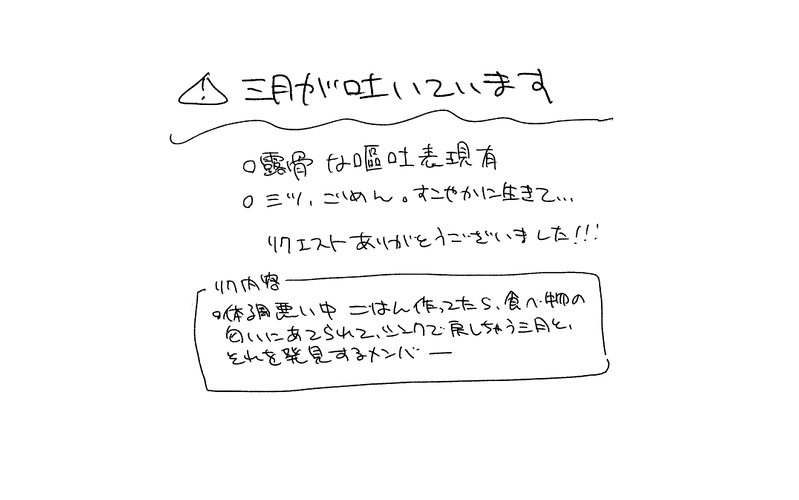 ⚠ 三月が吐いています
○露骨な嘔吐表現有
○ミツ、ごめん。すこやかに生きて…
リクエストありがとうございました!!!
リク内容
○体調悪い中ごはん作ってたら、食べ物の
匂いにあてられて、シンクで戻しちゃう三月と、
それを発見するメンバー